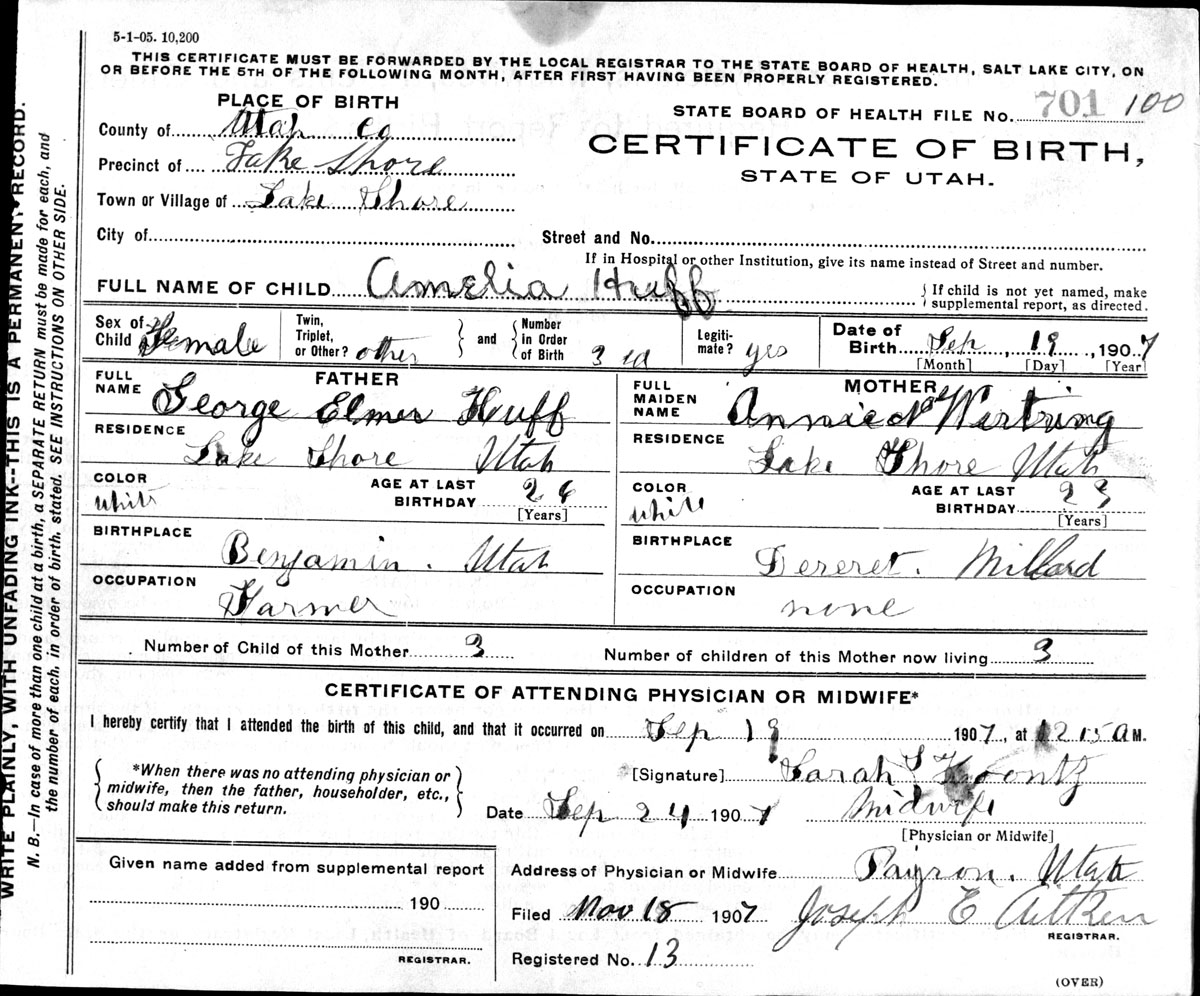 5-1-05. 10,200
THIS CERTIFICATE MUST BE FORWARDED BY THE LOCAL REGISTRAR TO THE STATE BOARD OF HEALTH, SALT LAKE CITY, ON
OR BEFORE THE 5TH OF THE FOLLOWING MONTH, AFTER FIRST HAVING BEEN PROPERLY REGISTERED.
WRITE PLAINLY, WITH UNFADING INK--THIS IS A PERMANENT RECORD.
N. B.—In case of more than one child at a birth, a SEPARATE RETURN must be made for each, and
the number of each, in order of birth, stated. SEE INSTRUCTIONS ON OTHER SIDE.
PLACE OF BIRTH
County of Utah Co
Precinct of Lake Shore
Town or Village of Lake Shore
City of
STATE BOARD OF HEALTH FILE NO. 701 100
CERTIFICATE OF BIRTH,
STATE OF UTAH.
Street and No.
If in Hospital or other Institution, give its name instead of Street and number.
FULL NAME OF CHILD Amelia Huff
{ If child is not yet named, make
supplemental report, as directed.
Sex of Child Female
Twin, Triplet, or Other? other
and
Number in Order of Birth 3rd
Legiti-mate? yes
Date of Birth Sep, 19, 1907
[Month] [Day] [Year]
FATHER
FULL NAME George Elmer Huff
RESIDENCE
Lake Shore Utah
COLOR white
AGE AT LAST BIRTHDAY 26
[Years]
BIRTHPLACE
Benjamin. Utah
OCCUPATION
Farmer
MOTHER
FULL MAIDEN NAME Annie
RESIDENCE
Lake Shore Utah
COLOR white
AGE AT LAST BIRTHDAY 23
[Years]
BIRTHPLACE
Dereret. Millard
OCCUPATION
none
Number of Child of this Mother 3
Number of children of this Mother now living 3
CERTIFICATE OF ATTENDING PHYSICIAN OR MIDWIFE*
I hereby certify that I attended the birth of this child, and that it occurred on Sep 19 1907, at 12 15 A M.
{ *When there was no attending physician or
midwife, then the father, householder, etc.,
should make this return. }
[Signature] Sarah S Koontz
Date Sep 24 1907 Midwife
[Physician or Midwife]
Given name added from supplemental report
190
REGISTRAR.
Address of Physician or Midwife Payson. Utah
Filed Nov 18 1907 Joseph E Aitken
REGISTRAR.
Registered No. 13
(OVER)